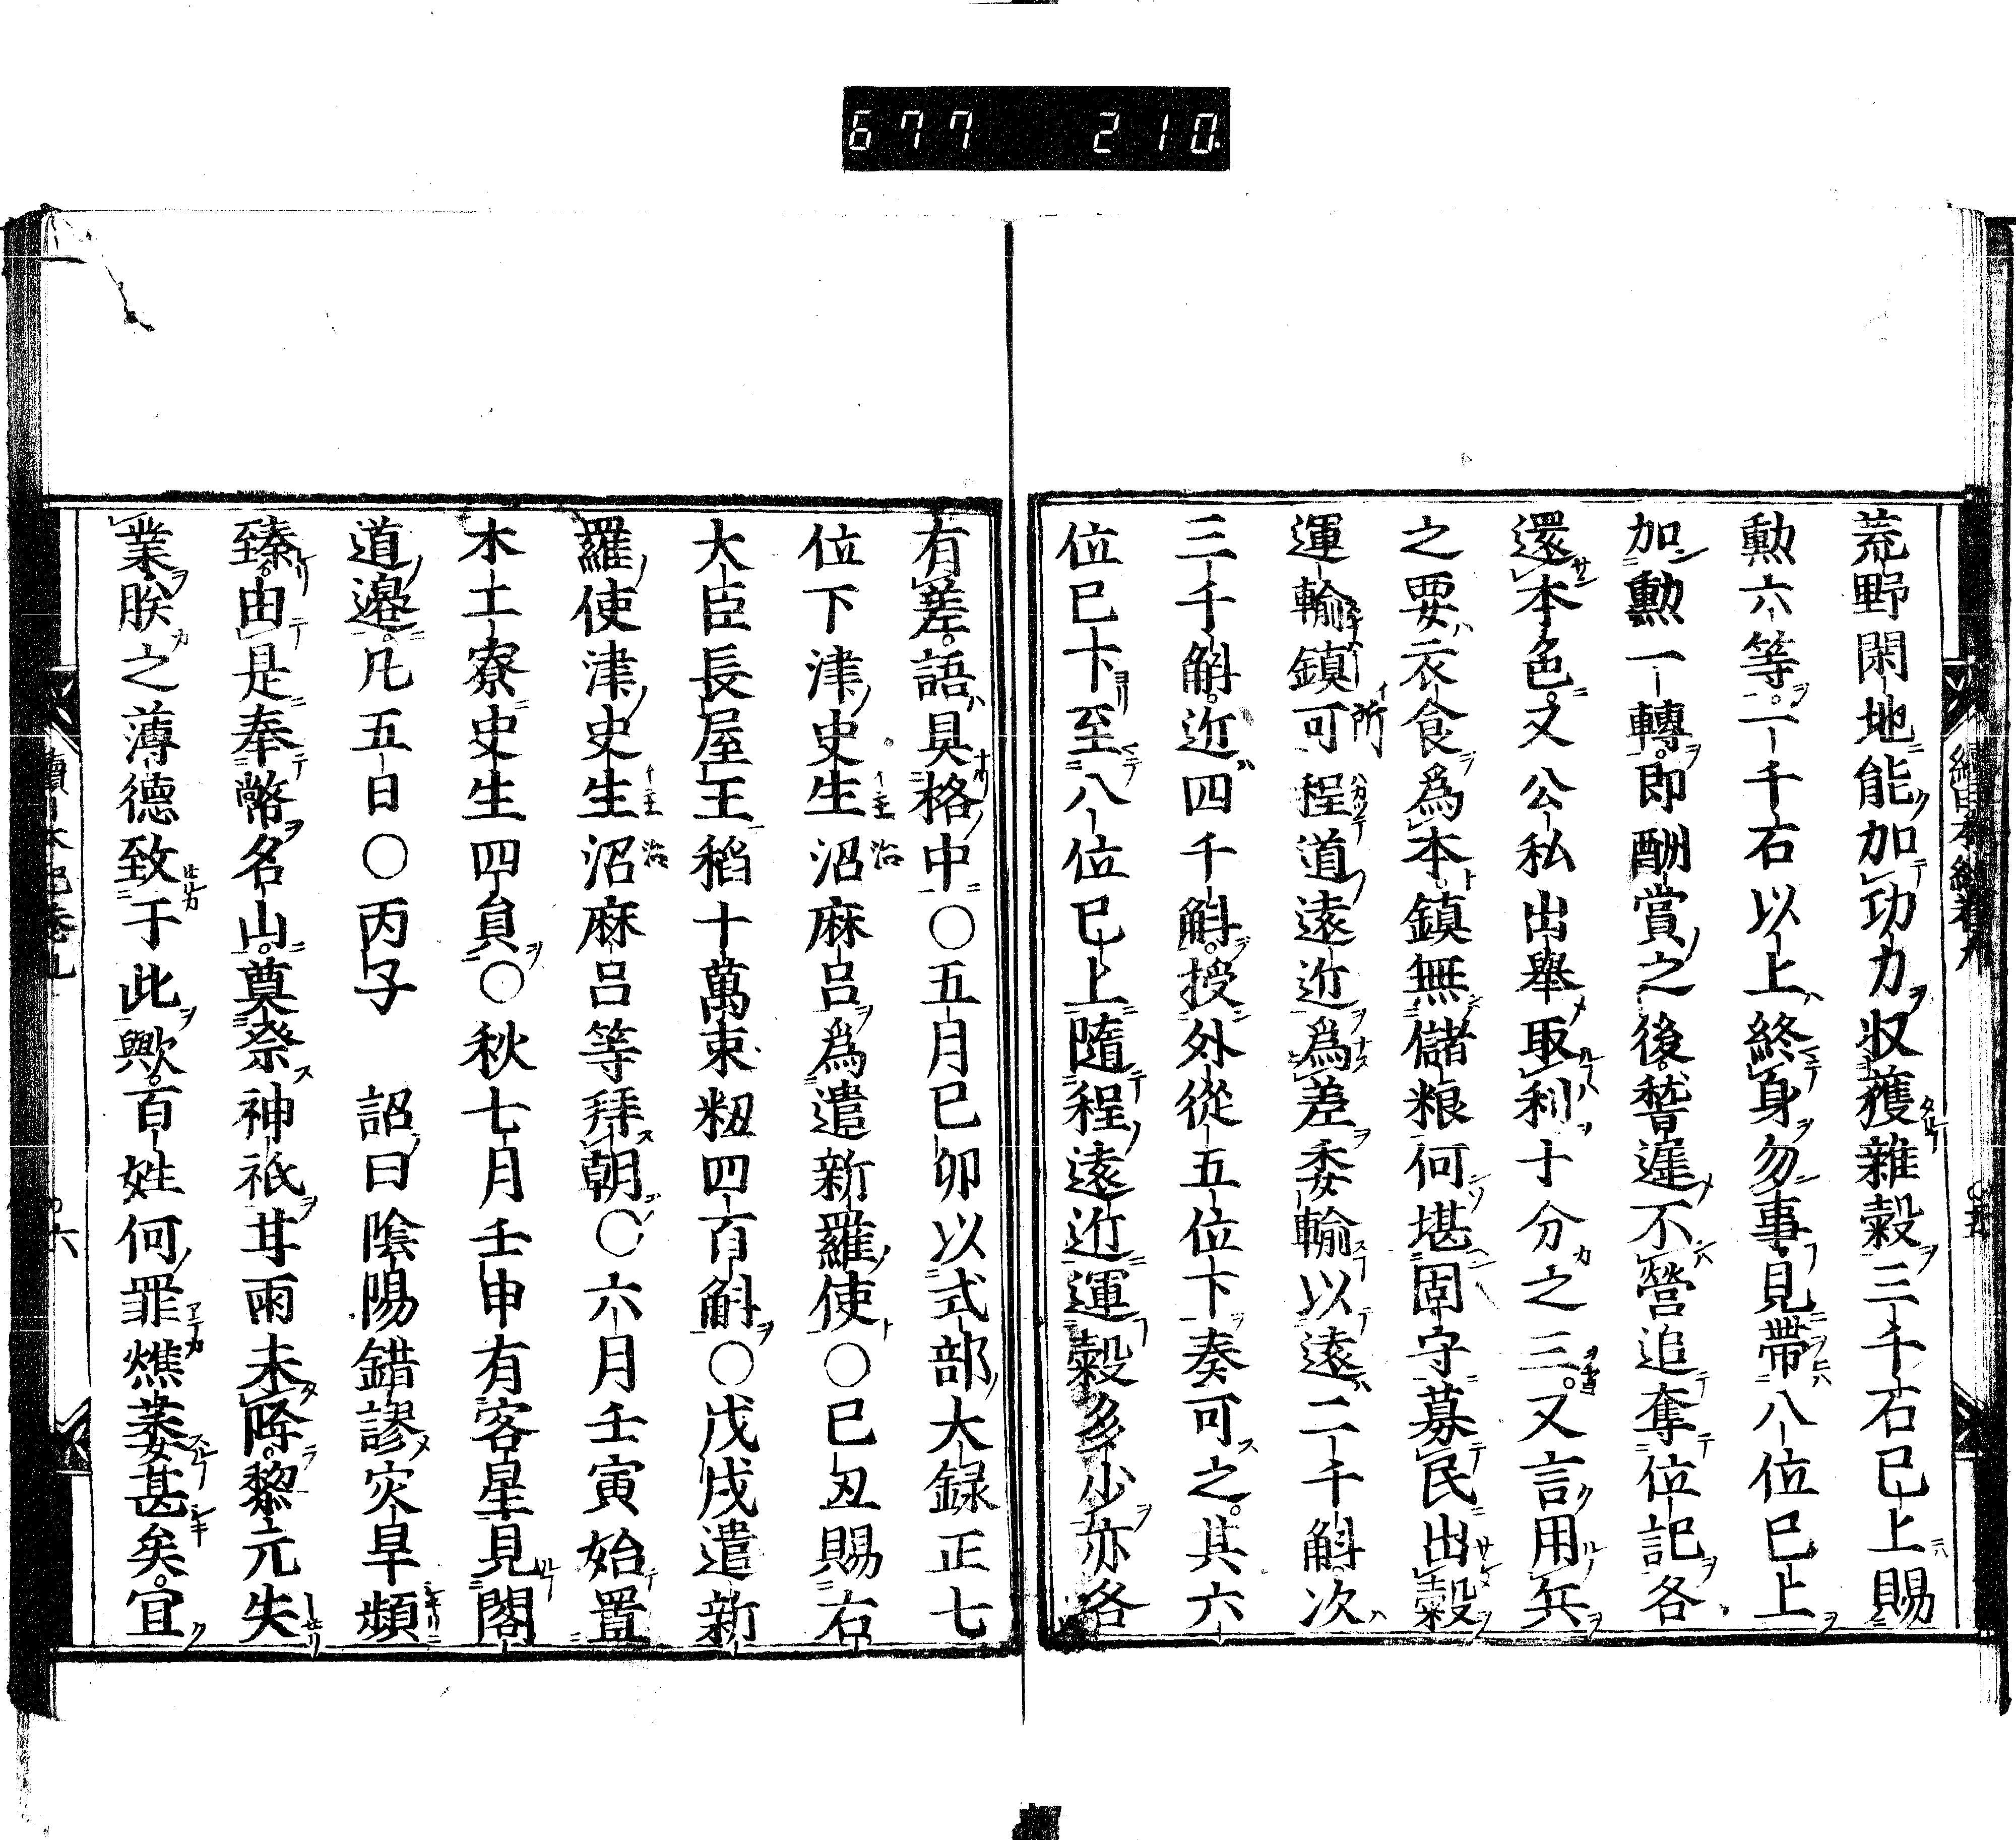 677 210.
荒野閑地能加功力収獲雜穀三千石已上賜
勲六等一千石以上終身勿事見帶八位已上
加勲一轉即酬賞之後稽遲不營追奪位記各
還本色又公私出舉取利十分之三又言用兵
之要衣食爲本鎮無儲粮何堪固守募民出穀
運輸鎮可程道遠近爲差委輸以遠二千斛次
三千斛近四千斛授外從五位下奏可之其六
位已下至八位已上隨程遠近運穀多少亦各
有差語具格中〇五月已卯以式部大録正七
位下津史生沼麻呂爲遣新羅使〇已丑賜右
大臣長屋王稻十萬束籾四百斛〇戊戌遣新
羅使津史生沼麻呂等拜朝〇六月壬寅始置
木工寮史生四員〇秋七月壬申有客星見閣
道邊凡五日〇丙子 詔曰陰陽錯謬灾旱頻
臻由是奉幣名山奠祭神祇甘雨未降黎元失
業朕之薄德致于此歟百姓何罪燋萎甚矣宜
六